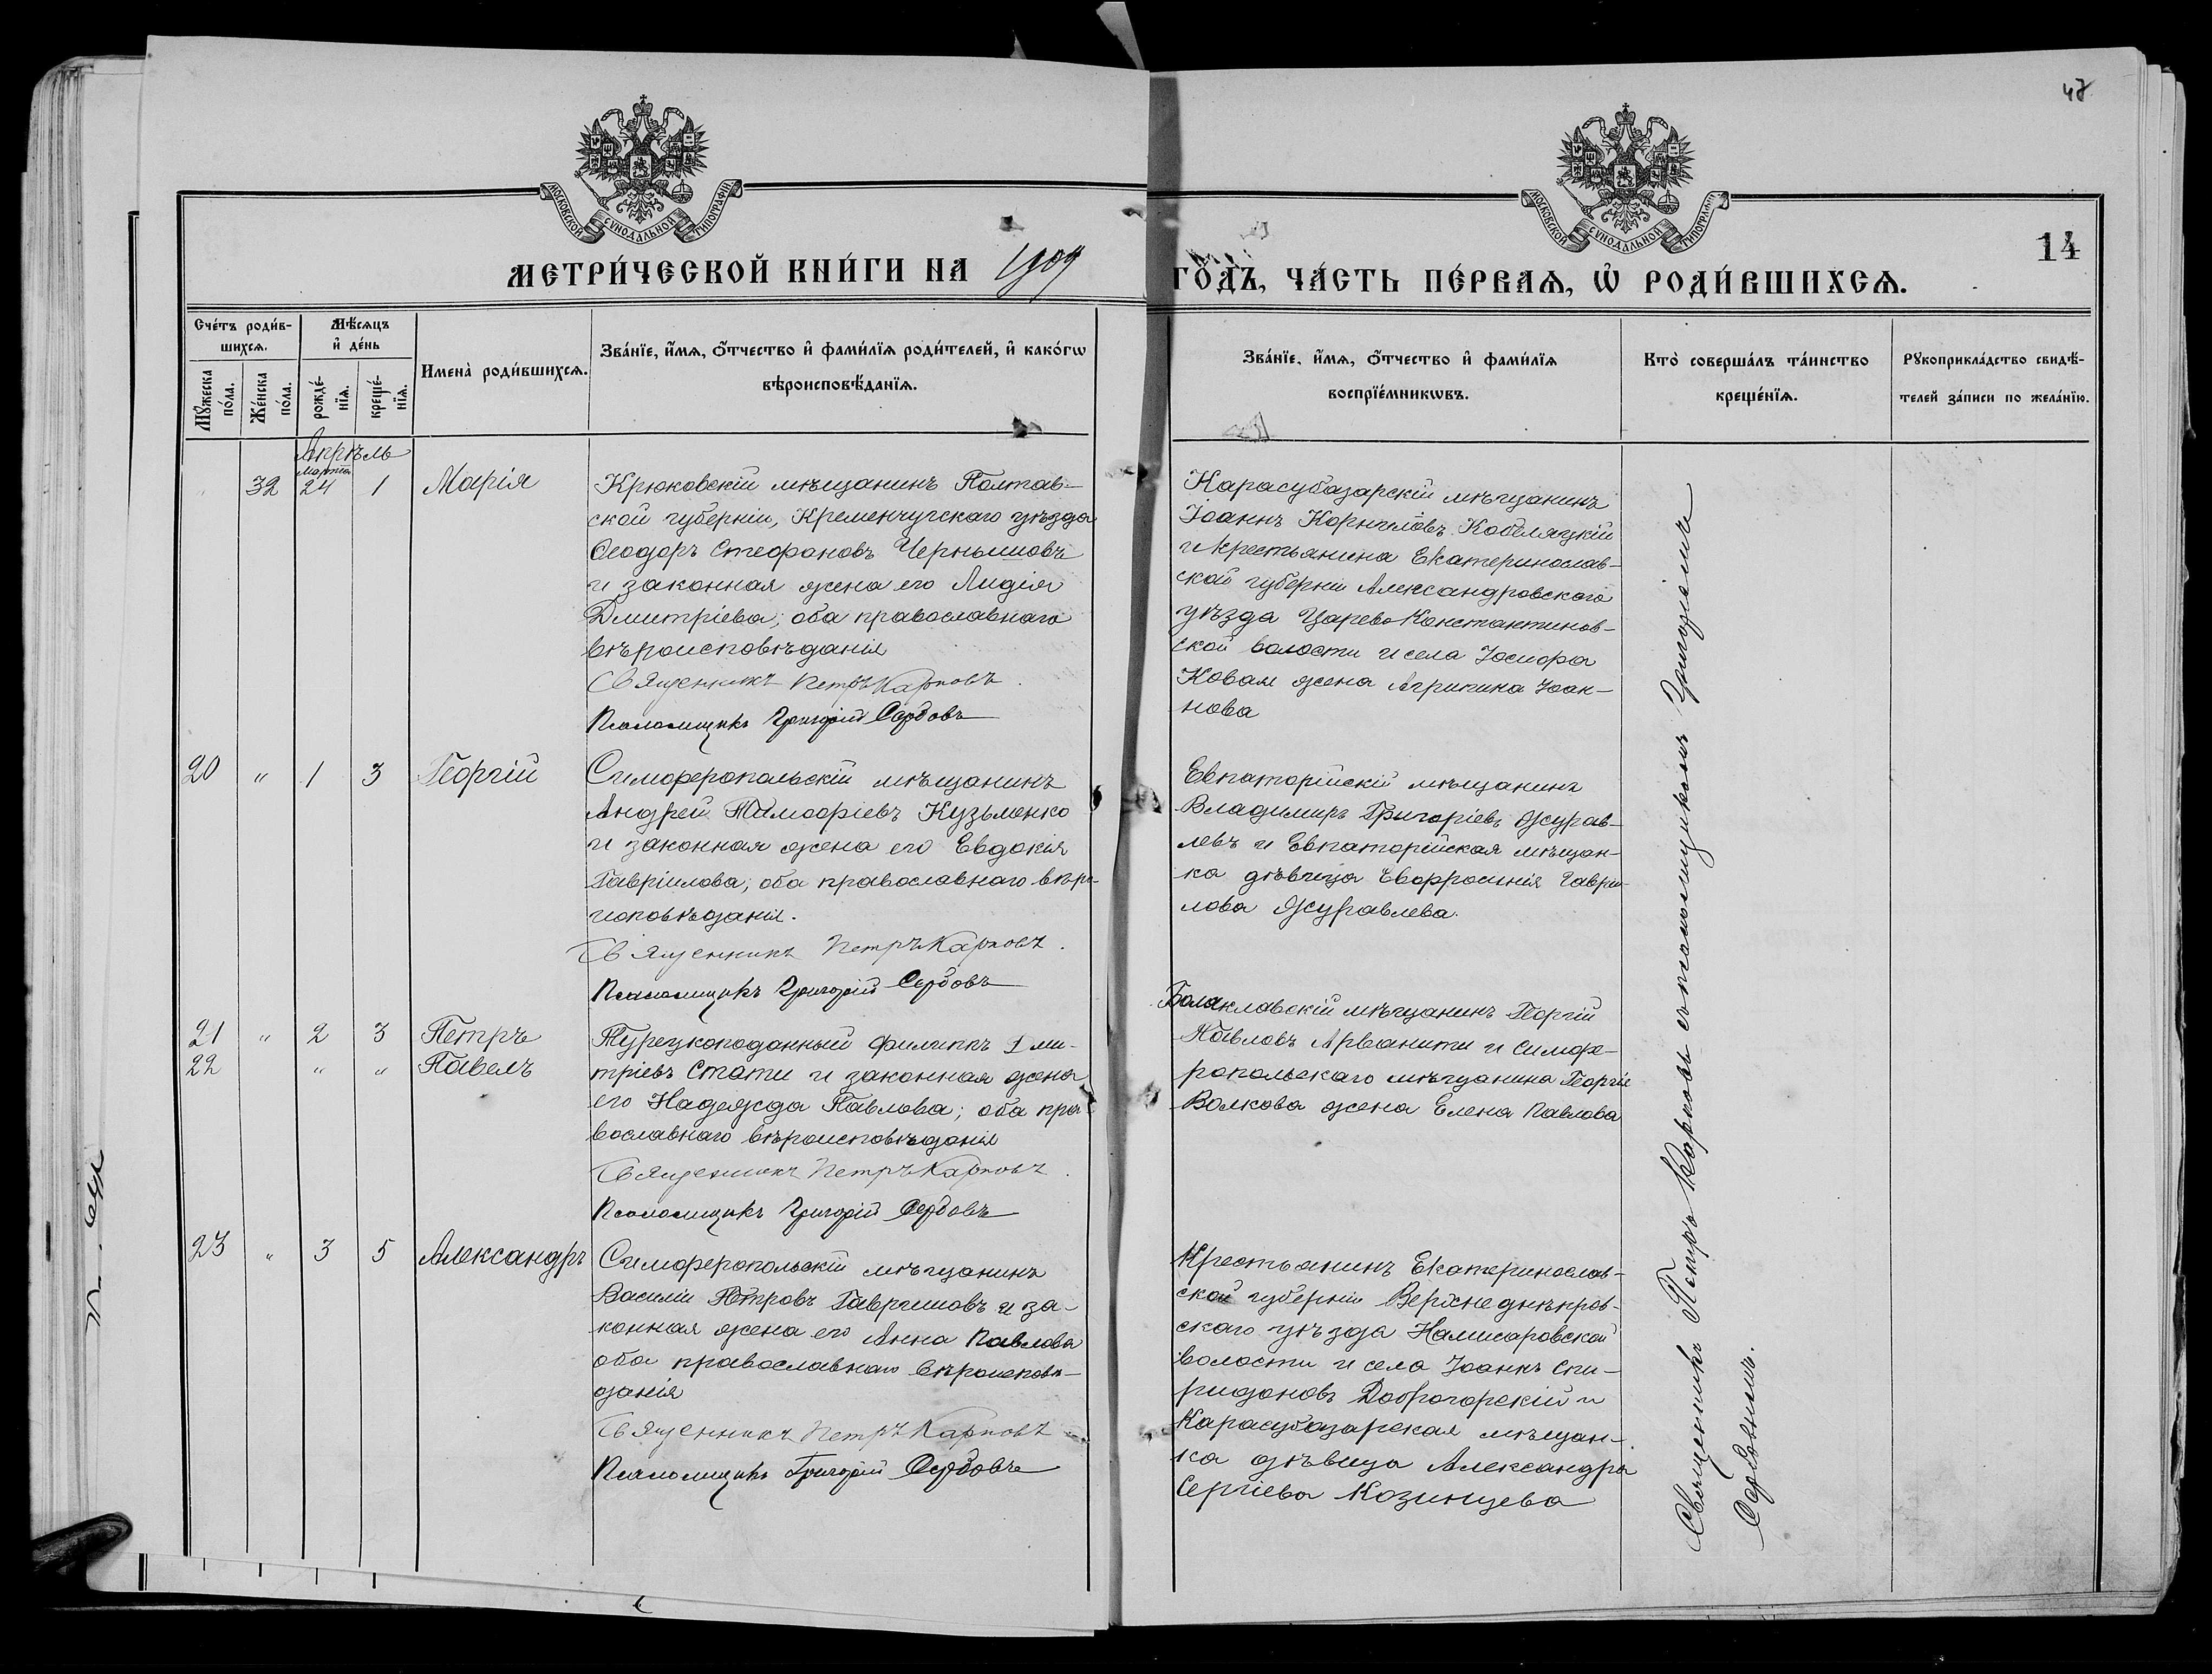 48
МОСКОВСКОЙ СУНОДАЛЬНОЙ ТИПОГРАФІИ
МОСКОВСКОЙ СУНОДАЛЬНОЙ ТИПОГРАФІИ
14
МЕТРИ́ЧЕСКОЙ КНИ́ГИ НА 1909 ГО́ДЪ, ЧА́СТЬ ПЕ́РВАѦ, Ѡ҆ РОДИ́ВШИХСѦ.
Сче́тъ роди́в-
шихсѧ.
Мꙋ́жеска
по́ла.
Же́нска
по́ла.
Мѣ́сѧцъ
и҆ де́нь
рожде́-
нїѧ.
креще́-
нїѧ.
Имена̀ роди́вшихсѧ.
Зва́нїе, и҆́мѧ, ѻ҆́тчество и҆ фами́лїѧ роди́телей, и҆ како́гѡ
вѣроисповѣ́данїѧ.
Зва́нїе, и҆́мѧ, ѻ҆́тчество и҆ фами́лїѧ
воспрїе́мникѡвъ.
Кто̀ соверша́лъ та́инство
креще́нїѧ.
Рꙋкоприкла́дство свидѣ́-
телей за́писи по жела́нїю.
Апрѣль
Марта
32 24 1 Марія
Крюковскій мѣщанинъ Полтав-
ской губерніи, Кременчугскаго уѣзда
Ѳеодоръ Стефановъ Чернышовъ
и законная жена его Лидія
Дмитріева; оба православнаго
вѣроисповѣданія
Священникъ Петръ Карповъ.
Псаломщикъ Григорій Сербовъ
Карасубазарскій мѣщанинъ
Іоаннъ Корниловъ Кобеляцкій
и крестьянина Екатеринослав-
ской губерніи Александровскаго
уѣзда Царево-Константинов-
ской волости и села Іосифа
Коваля жена Агрипина Іоан-
нова
20 " 1 3 Георгій
Симферопольскій мѣщанинъ
Андрей Тимоѳіевъ Кузьменко
и законная жена его Евдокія
Гавріилова; оба православнаго вѣро-
исповѣданія.
Священникъ Петръ Карповъ.
Псаломщикъ Григорій Сербовъ
Евпаторійскій мѣщанинъ
Владимиръ Григоріевъ Журав-
левъ и Евпаторійская мѣщан-
ка дѣвица Евфросинія Гаврі-
лова Журавлева.
21 " 2 3 Петръ
22 " " Павелъ
Турецкоподанный Филиппъ Дми-
тріевъ Стати и законная жена
его Надежда Павлова; оба пра-
вославнаго вѣроисповѣданія
Священникъ Петръ Карповъ.
Псаломщикъ Григорій Сербовъ
Балаклавскій мѣщанинъ Георгій
Павловъ Арванити и Симфе-
ропольскаго мѣщанина Георгія
Волкова жена Елена Павлова
23 " 3 5 Александръ
Симферопольскій мѣщанинъ
Василій Петровъ Гавриловъ и за-
конная жена его Анна Павлова
оба православнаго вѣроисповѣ-
данія
Священникъ Петръ Карповъ
Псаломщикъ Григорій Сербовъ
Крестьянинъ Екатеринослав-
ской губерніи Верхнеднѣпров-
скаго уѣзда
волости и села Іоаннъ Спи-
ридоновъ Доброгорскій и
Карасубазарская мѣщан-
ка дѣвица Александра
Сергіева Козинцева
Священникъ Петръ Карповъ съ псаломщикомъ Григоріемъ
Сербовымъ.